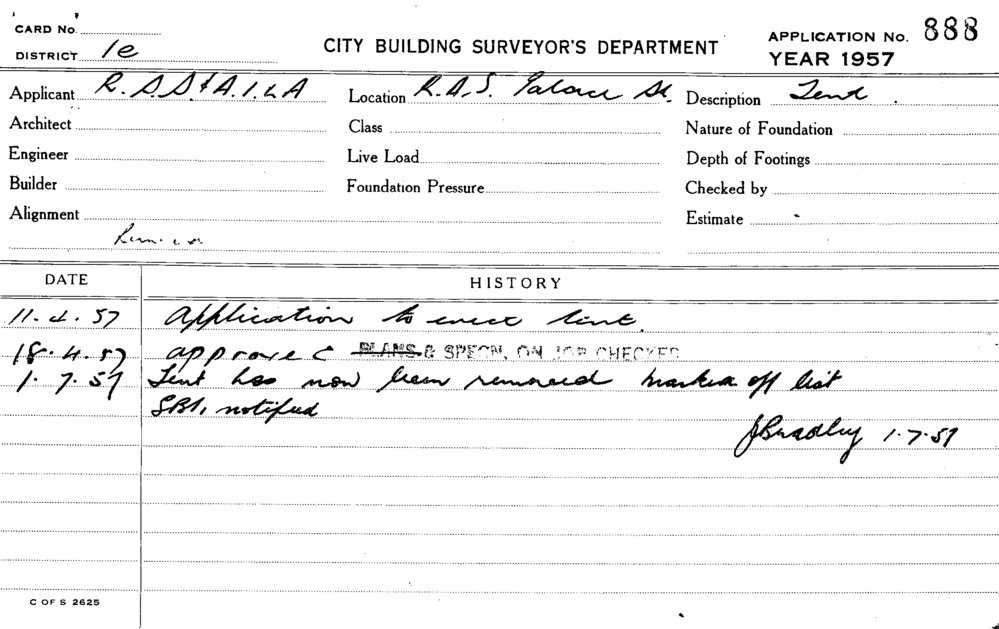 CARD No.
DISTRICT 1e
CITY BUILDING SURVEYOR'S DEPARTMENT
APPLICATION No. 888
YEAR 1957
Applicant R.S.S & A.I.L.A
Location R.A.S. Palace St.
Description Tent
Architect
Class
Nature of Foundation
Engineer
Live Load
Depth of Footings
Builder
Foundation Pressure
Checked by
Alignment
Estimate
DATE HISTORY
11.4.57 Application to erect tent.
18.4.57 approved PLANS & SPECN, ON JOB CHECKED
1.7.57 Tent has now been removed marked off list
notified
JBradley 1.7.57
C OF S 2625